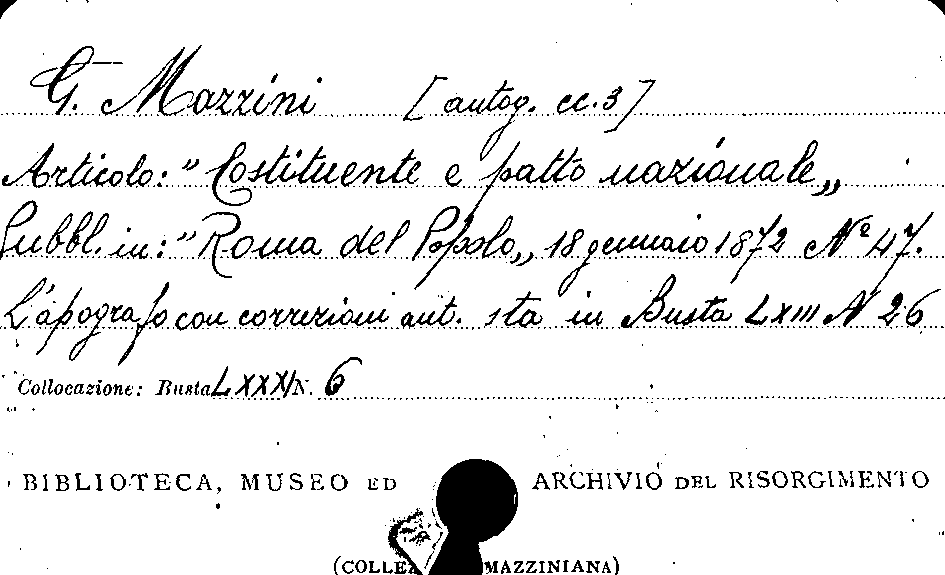 G. Mazzini [autog. cc. 3]
Articolo: "Costituente e patto nazionale„
Pubbl. in: "Roma del Popolo„ 18 gennaio 1872 Nº 47.
L'apografo con correzioni aut. sta in Busta LXIII N 26
Collocazione: Busta LXXXI N. 6
BIBLIOTECA, MUSEO ED ARCHIVIO DEL RISORGIMENTO
(COLLE MAZZINIANA)